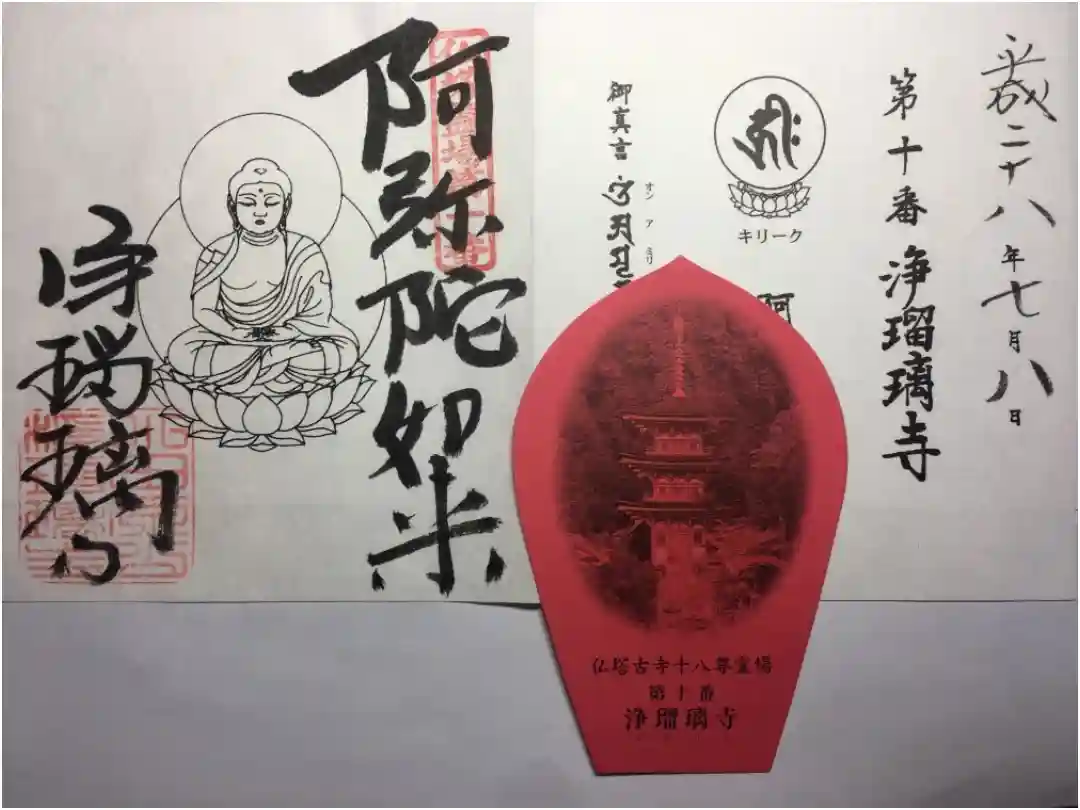 平成二十八年七月八日
第十番 浄瑠璃寺
キリーク
阿
オン ア ミリ
御真言
阿弥陀如来
浄瑠璃寺
仏塔古寺十八尊霊場
第十番
浄瑠璃寺